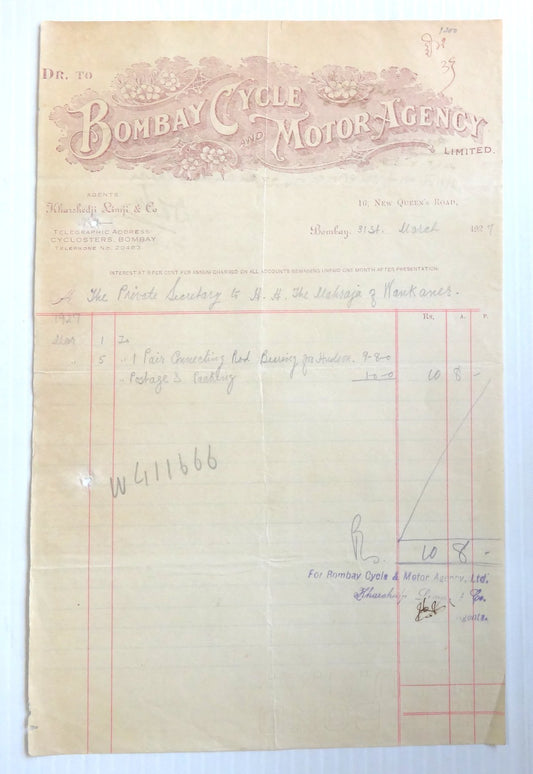 DR. TO
BOMBAY CYCLE AND MOTOR AGENCY
LIMITED.
AGENTS
Kharshedji Limji & Co
TELEGRAPHIC ADDRESS:
CYCLOSTERS, BOMBAY
TELEPHONE NO. 20423
16, NEW QUEEN'S ROAD,
Bombay, 31st March 1927
INTEREST AT 9 PER CENT. PER ANNUM CHARGED ON ALL ACCOUNTS REMAINING UNPAID ONE MONTH AFTER PRESENTATION.
The Private Secretary to H. H. The Mahraja of Wankaner.
1927
RS. A. P.
Mar 1 To
" 5 " 1 Pair Connecting Rod Bearing for Hudson. 9-8-0
" Postage & Packing 1-0-0 10 8 -
W411666
Rs. 10 8 -
For Bombay Cycle & Motor Agency, Ltd.
Kharshedji Limji & Co.
Agents.